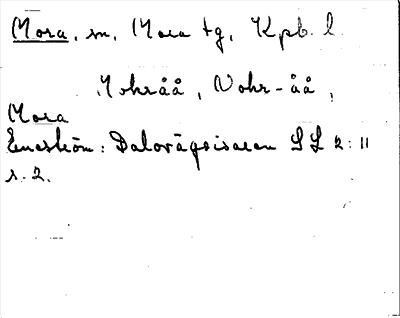 Mora, sn, Mora tg, Kpb. l.
Mohråå, Vohr-åå,
Mora
Eneström: Dalovägvisaren SL 2:11
s. 2.